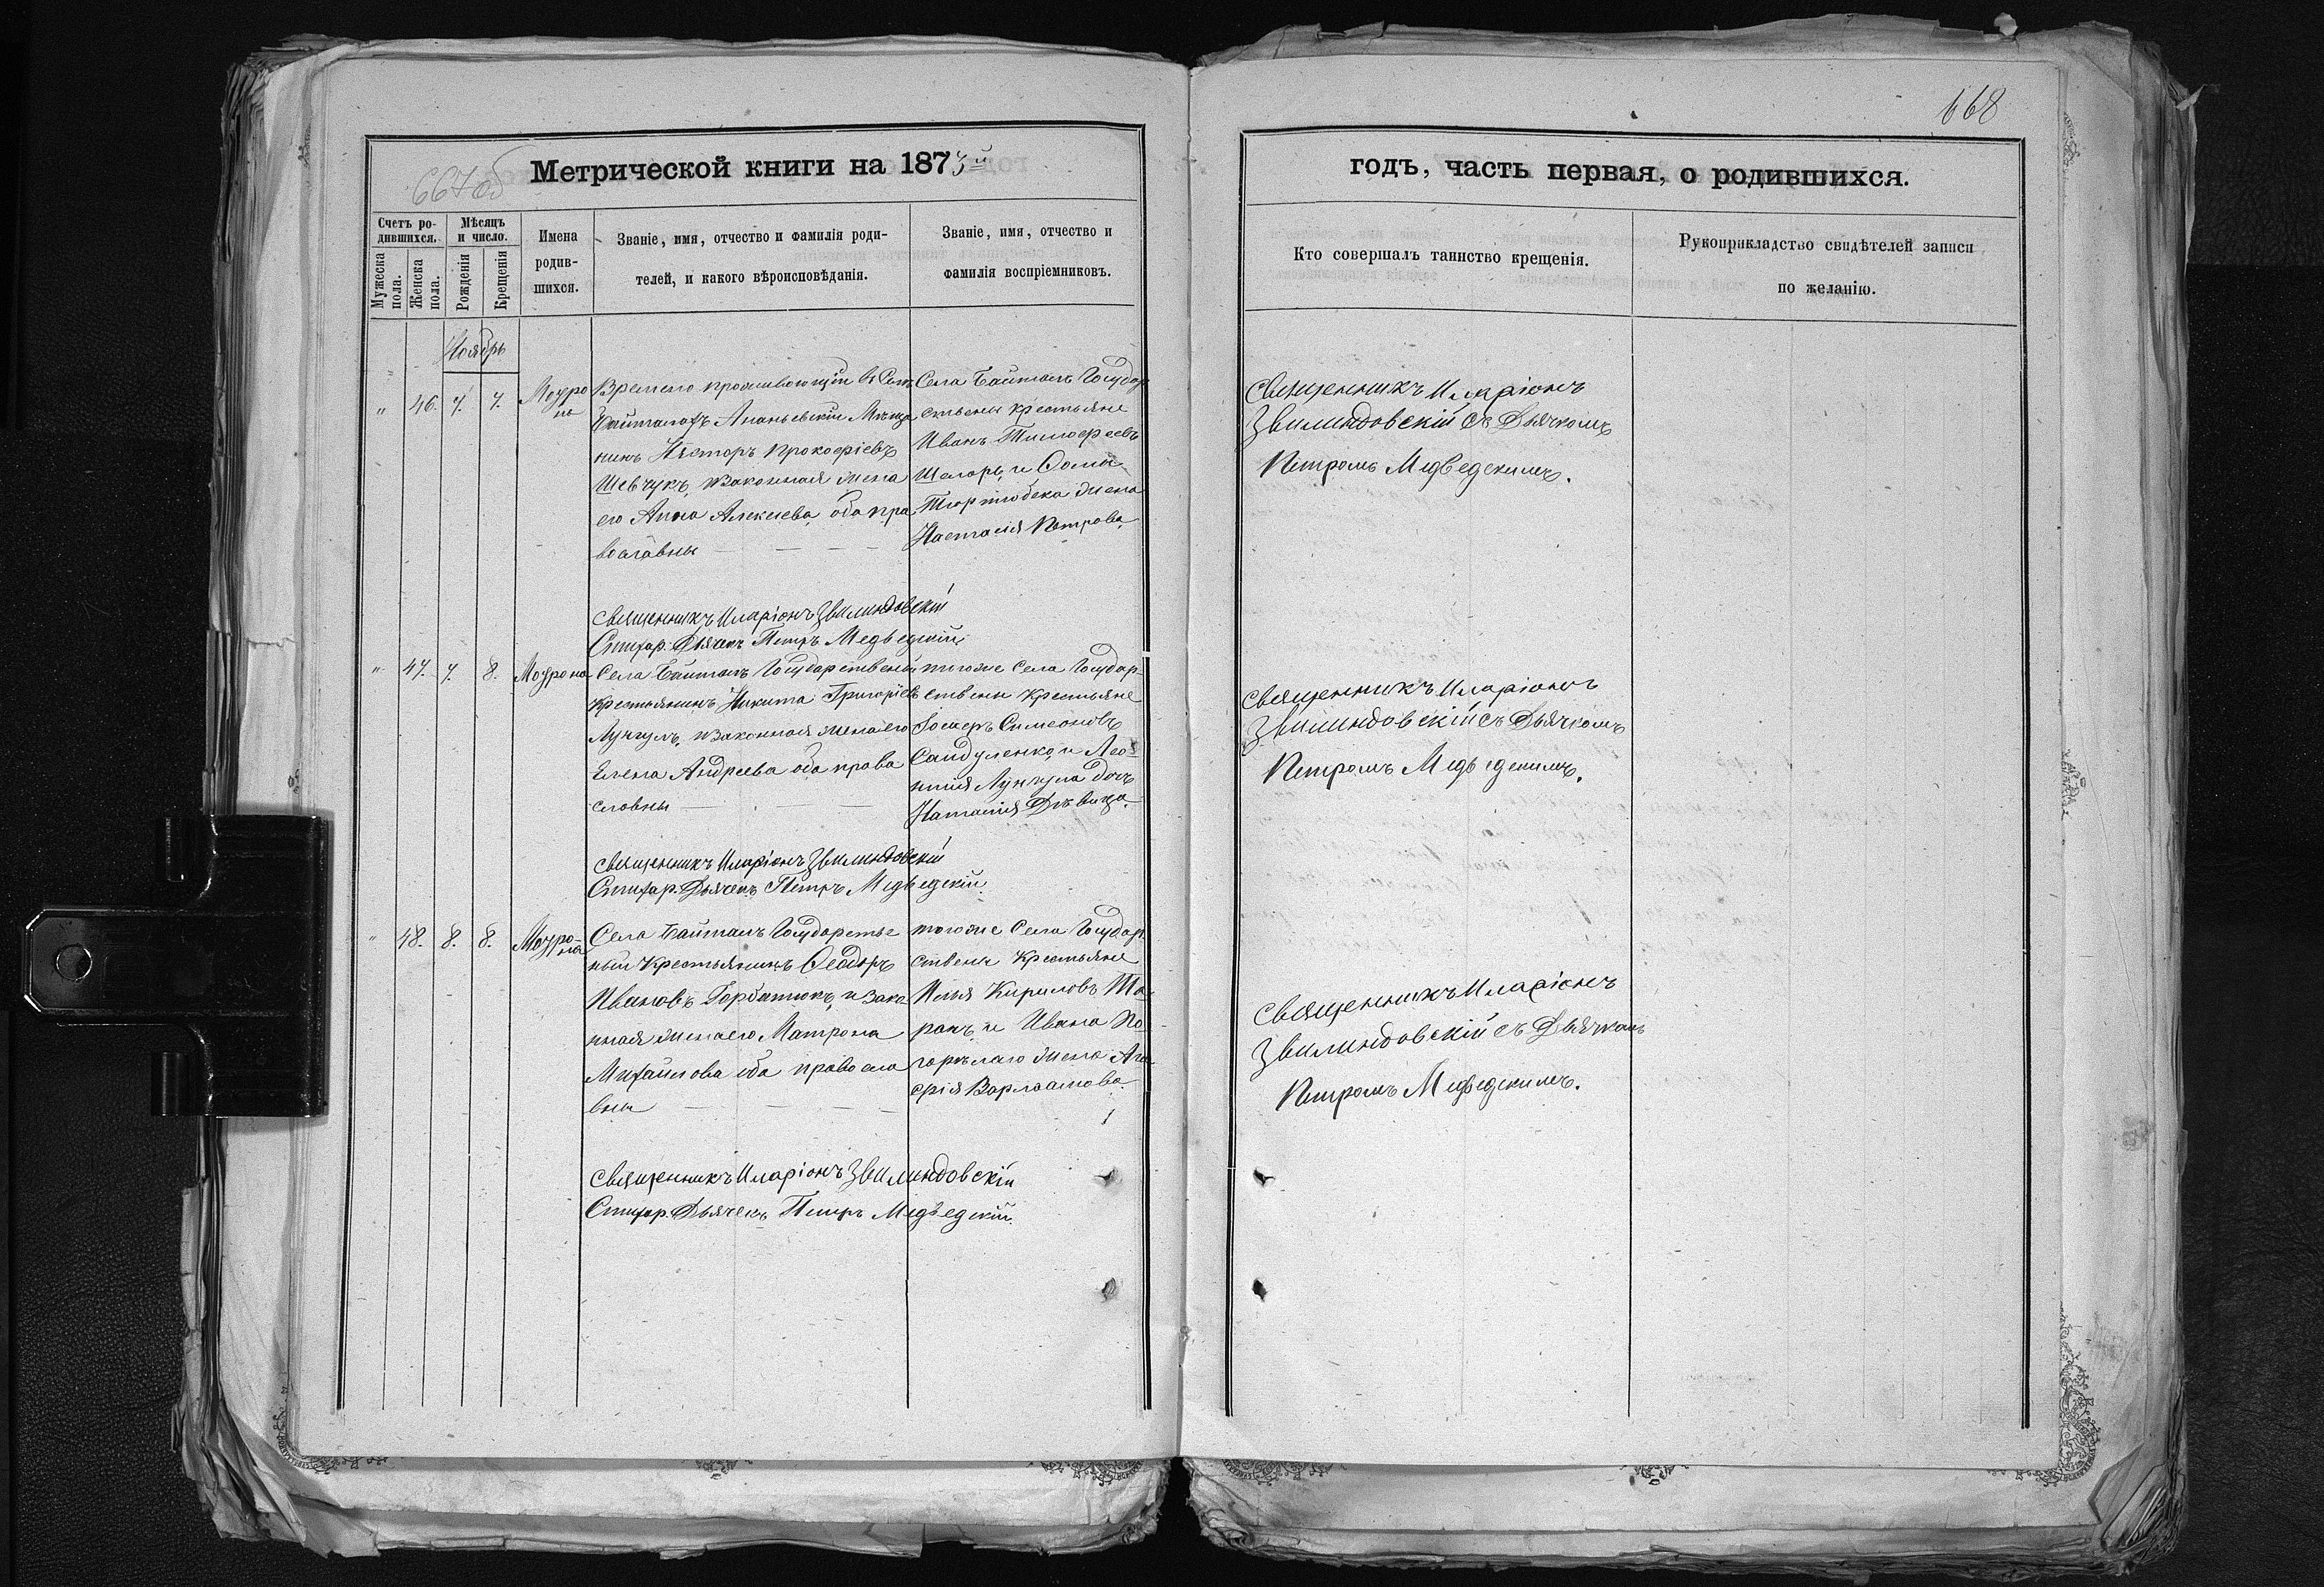 668
667 об
Метрической книги на 1873й
годъ, часть первая, о родившихся.
Счетъ ро-
дившихся.
Мѣсяцъ
и число.
Мужеска
пола.
Женска
пола.
Рожденія
Крещенія
Имена
родив-
шихся.
Званіе, имя, отчество и фамилія роди-
телей, и какого вѣроисповѣданія.
Званіе, имя, отчество и
фамилія воспріемниковъ.
Кто совершалъ таинство крещенія.
Рукоприкладство свидѣтелей записи
по желанію.
Ноябрь
" 46. 7. 7.
Временно проживающій въ Селѣ
Ананьевскій Мѣща
нинъ Несторъ Прокофіевъ
Шевчукъ, и законная жена
его Анна Алексѣева, оба пра
вославны
Села Байталъ Государ
ственны крестьяне
Иванъ Тимофеевъ
и Фомы
жена
Настасія Петрова
Священникъ Иларіонъ
Звилиндовскій съ Дьячкомъ
Петромъ Медведскимъ.
Священникъ Иларіонъ Звилиндовскій
Стихар. Дьячекъ Петръ Медведскій
" 47. 7. 8.
Села Байталъ Государственый
Крестьянинъ Никита Григоріевъ
Лунгулъ, и законная жена его
Елена Андреева оба право
славны
тогоже Села Государ
ственны Крестьяне
Симеоновъ
Сандуленко, и
Лунгула дочь
Наталія Дѣвица.
Священникъ Иларіонъ
Звилиндовскій съ Дьячкомъ
Петромъ Медведскимъ.
Священникъ Иларіонъ Звилиндовскій
Стихар. Дьячекъ Петръ Медведскій.
" 48. 8. 8.
Села Байталъ Государстве
ный Крестьянинъ Феодоръ
Ивановъ Горбатюкъ, и зако
нная жена его Матрона
Михайлова оба правосла
вны
тогоже Села Государ
ственны Крестьяне
Илія Кириловъ Та
ранъ, и Ивана По
горѣлаго жена Ага
фія Варлаамова
Священникъ Иларіонъ
Звилиндовскій съ Дьячкомъ
Петромъ Медведскимъ.
Священникъ Иларіонъ Звилиндовскій
Стихар. Дьячекъ Петръ Медведскій.